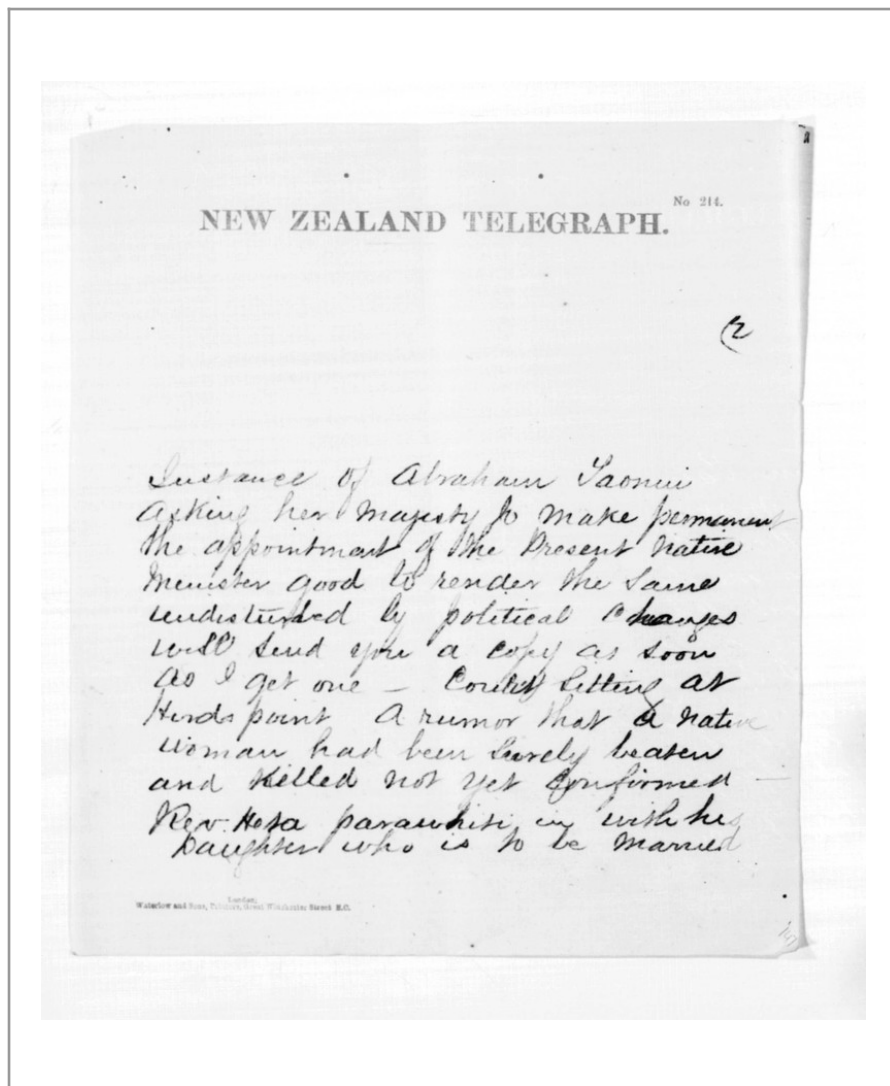 No 214.
NEW ZEALAND TELEGRAPH.
(2
Instance of Abraham Taonui
Asking her Majesty to make permanent
the appointment of the Present native
Minister good to render the same
undisturbed by political changes
will send you a copy as soon
as I get one — Court Sitting at
Herds point A rumor that a native
woman had been beaten
and killed not yet Confirmed —
Rev. Hoha parawhiti in with his
Daughter who is to be Married
London;
Waterlow and Sons, Printers, Great Winchester Street E.C.